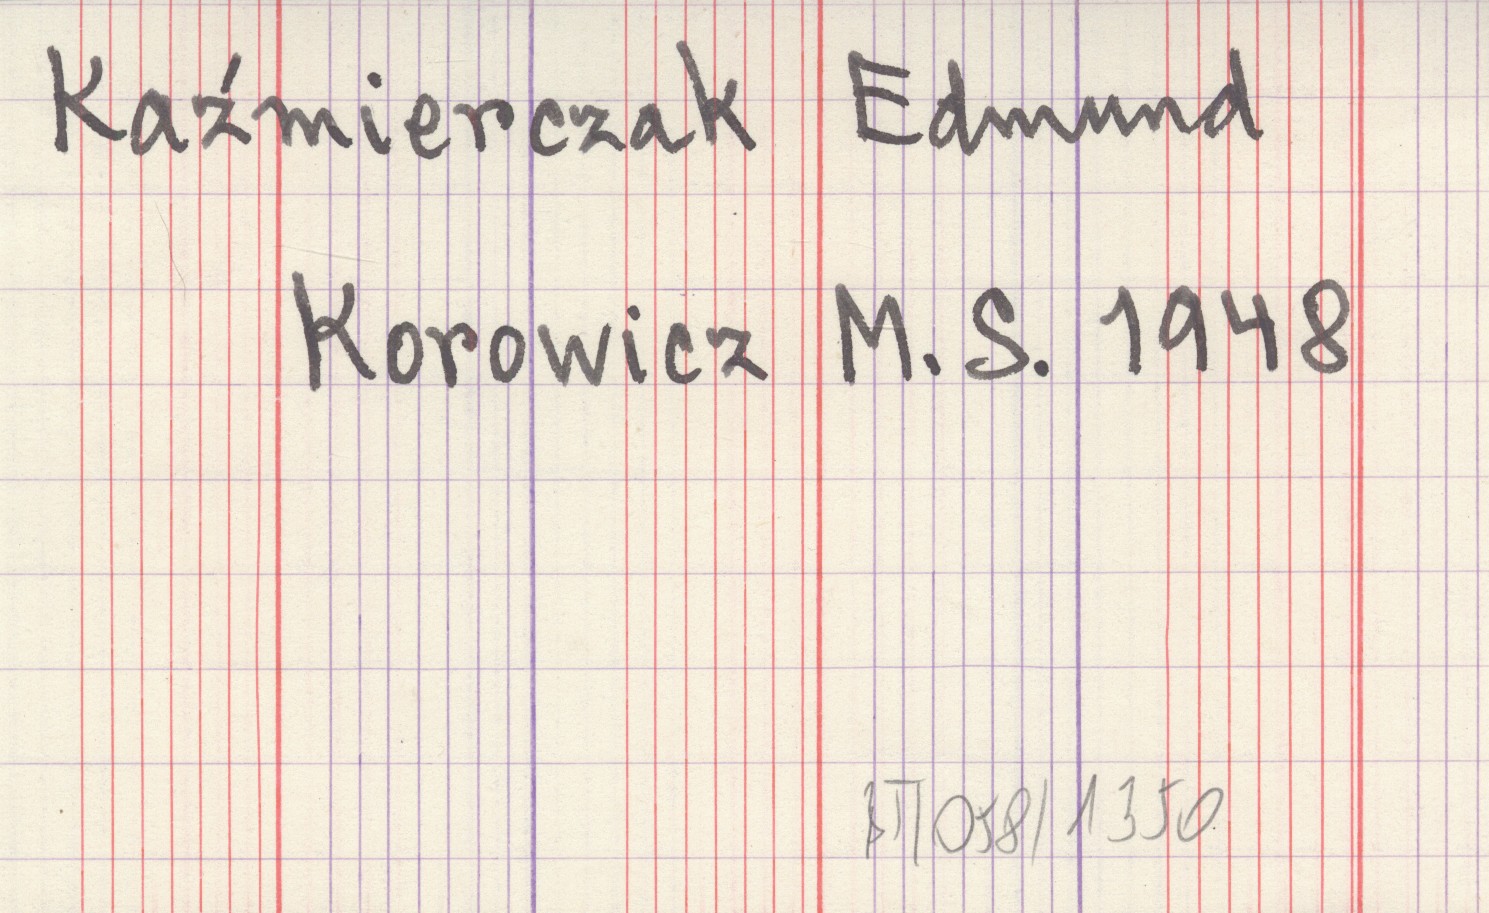 Kaźmierczak Edmund
Korowicz M. S. 1948
058/1350